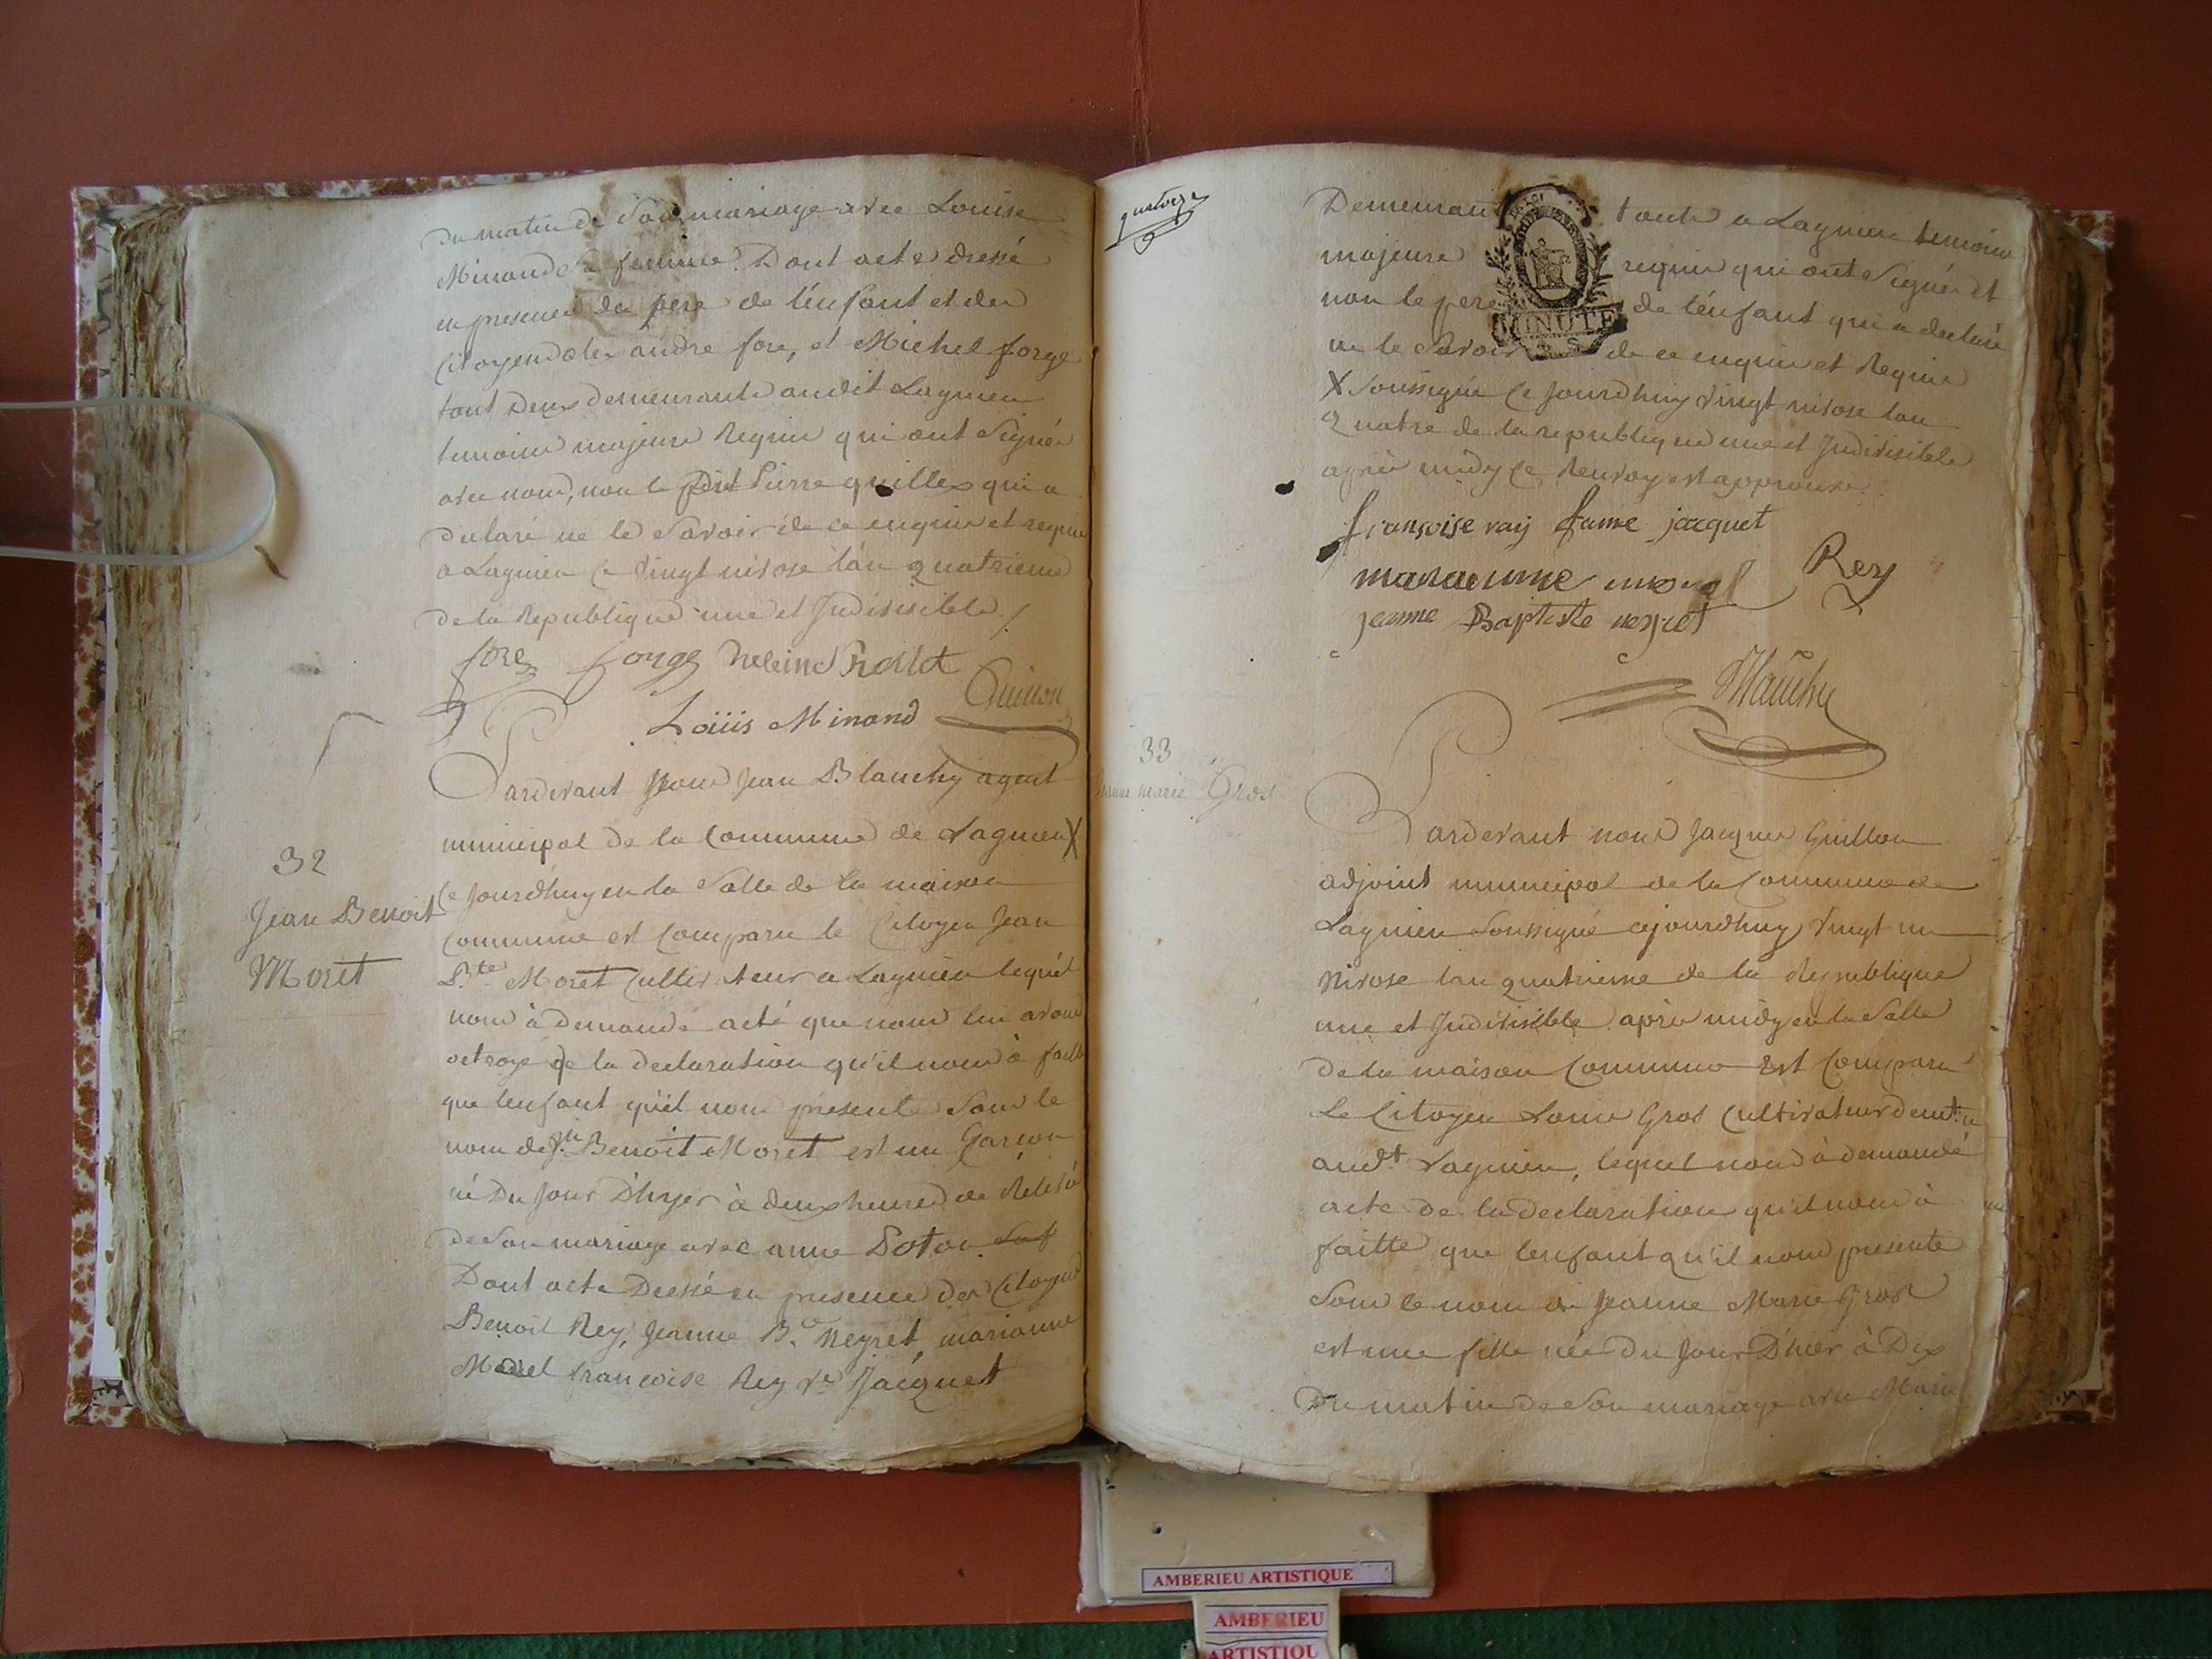 du matin de son mariage avec Louise
Minand sa femme. Dont acte dressé
en presence du pere de l'enfant et des
Citoyens andre fore, et Michel forge
tout deux demeurants audit Lagnieu
temoins majeurs requis qui ont Signés
avec nous, non le dit Pierre quilles qui a
declaré ne le Savoir de ce enquis et requis
a Lagnieu ce vingt nivose l'an quatrieme
de la Republique une et Indivisible
fore forge heleine Rollet
Loüis Minand Guillon
Pardevant Nous Jean Blanchy agent
municipal de la Commune de Lagnieu X
Ce Jourd'huy en la Salle de la maison
Commune est Comparu le Citoyen Jean
Bte Moret Cultivateur a Lagnieu lequel
nous à demandé acte que nous lui avons
octroyé de la declaration qu'il nous à faitte
que lenfant qu'il nous presente Sous le
nom de Jn Benoit Moret est un Garçon
né Du Jour D'hyer à deux heures de Relevé
de Son mariage avec anne Poton
Dont acte Dressé en presence des Citoyens
Benoit Rey, Jeanne Bte Neyret, marianne
Morel francoise Rey ve Jacquet
32
Jean Benoit
Moret
quatorze
Demeurant touts a Lagnieu temoins
majeurs requis qui ont Signés et
non le pere de l'enfant qui a declaré
ne le Savoir de ce enquis et Requis
X Soussigné Ce Jourdhuy vingt nivose lan
Quatre de la republique une et Indivisible
après midy Ce Renvoy est approuvé
fransoise ray fame jacquet
Rey
jeanne Baptiste neyret
Blanchy
33
Jeanne marie Gros
Pardevant nous Jacques Guillon
adjoint municipal de la Commune de
Lagnieu Soussigné cejourdhuy vingt un
Nivose lan quatrieme de la Republique
une et Indivisible après midy en la Salle
de la maison Commune Est Comparu
Le Citoyen Louis Gros Cultivateur demt a
audt Lagnieu, lequel nous à demandé
acte de la declaration qu'il nous à
faitte que lenfant qu'il nous presente
Sous le nom de Jeanne Marie Gros
est une fille née Du Jour D'hier à Dix
Du matin de Son mariage avec Marie
AMBERIEU ARTISTIQUE
AMBERIEU
ARTISTIQU
MINUTE